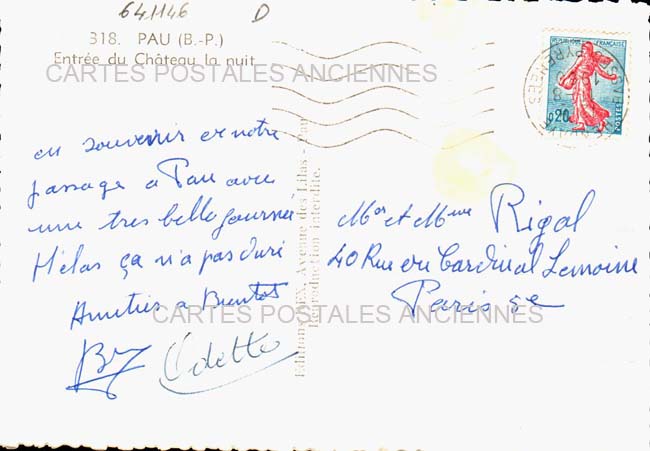 641146 D
318. PAU (B.-P.)
Entrée du Château la nuit
CARTES POSTALES ANCIENNES
REPUBLIQUE FRANÇAISE
0,20
POSTES
en souvenir de notre
passage a Pau avec
une tres belle journée
Hélas ça n'a pas duré
Amitiés a Bientot
Odette
Avenue des Lilas - Pau
Reproduction interdite.
Mr et Mme Rigal
40 Rue du Cardinal Lemoine
Paris 5e
CARTES POSTALES ANCIENNES